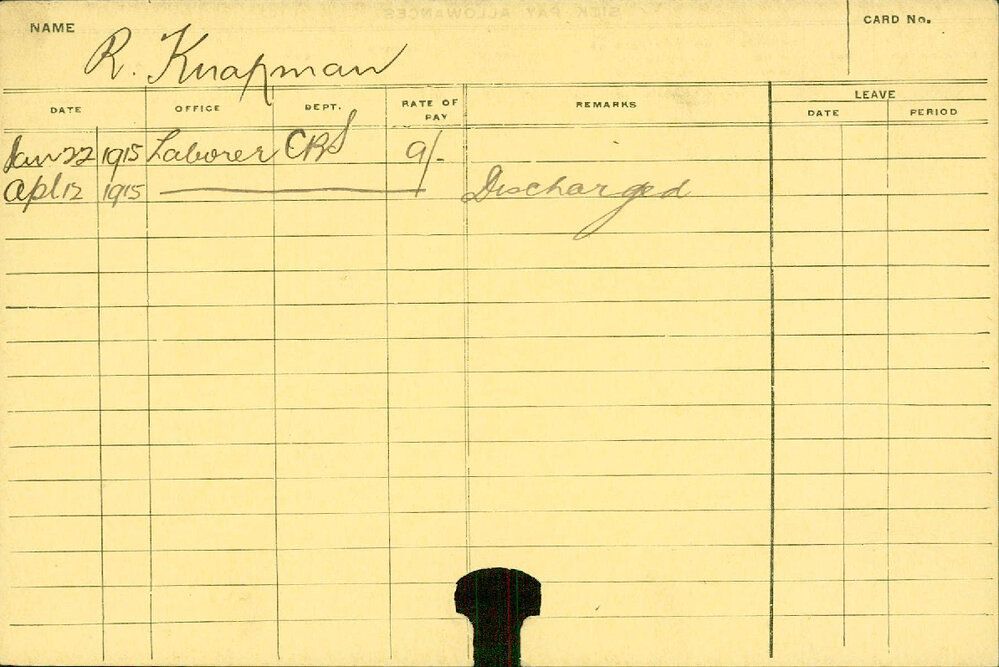 NAME
R. Knapman
CARD No.
DATE OFFICE DEPT. RATE OF PAY REMARKS LEAVE
DATE PERIOD
Jan 22 1915 Laborer CRS 9/-
Apl 12 1915 Discharged